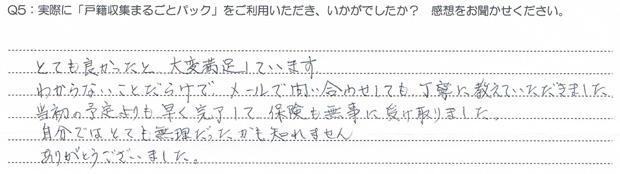 Q5：実際に「戸籍収集まるごとパック」をご利用いただき、いかがでしたか？ 感想をお聞かせください。
とても良かったと 大変満足しています
わからないことだらけで メールで問い合わせしても 丁寧に教えていただきました
当初の予定よりも早く完了して 保険も無事に受け取りました
自分ではとても無理だったかも知れません
ありがとうございました。